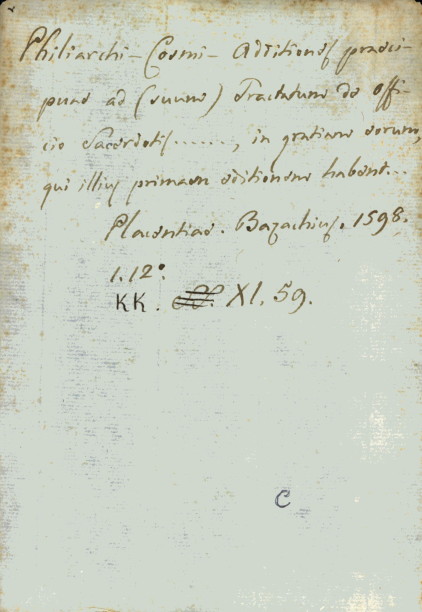 Philiarchi - Cosmi - Additiones praeci-
puae ad (suum) Tractatum de offi-
cio Sacerdotis......., in gratiam eorum,
qui illius primam editionem habent...
Placentiae. Bazachius. 1598.
1. 12°.
KK. XI. 59.
C